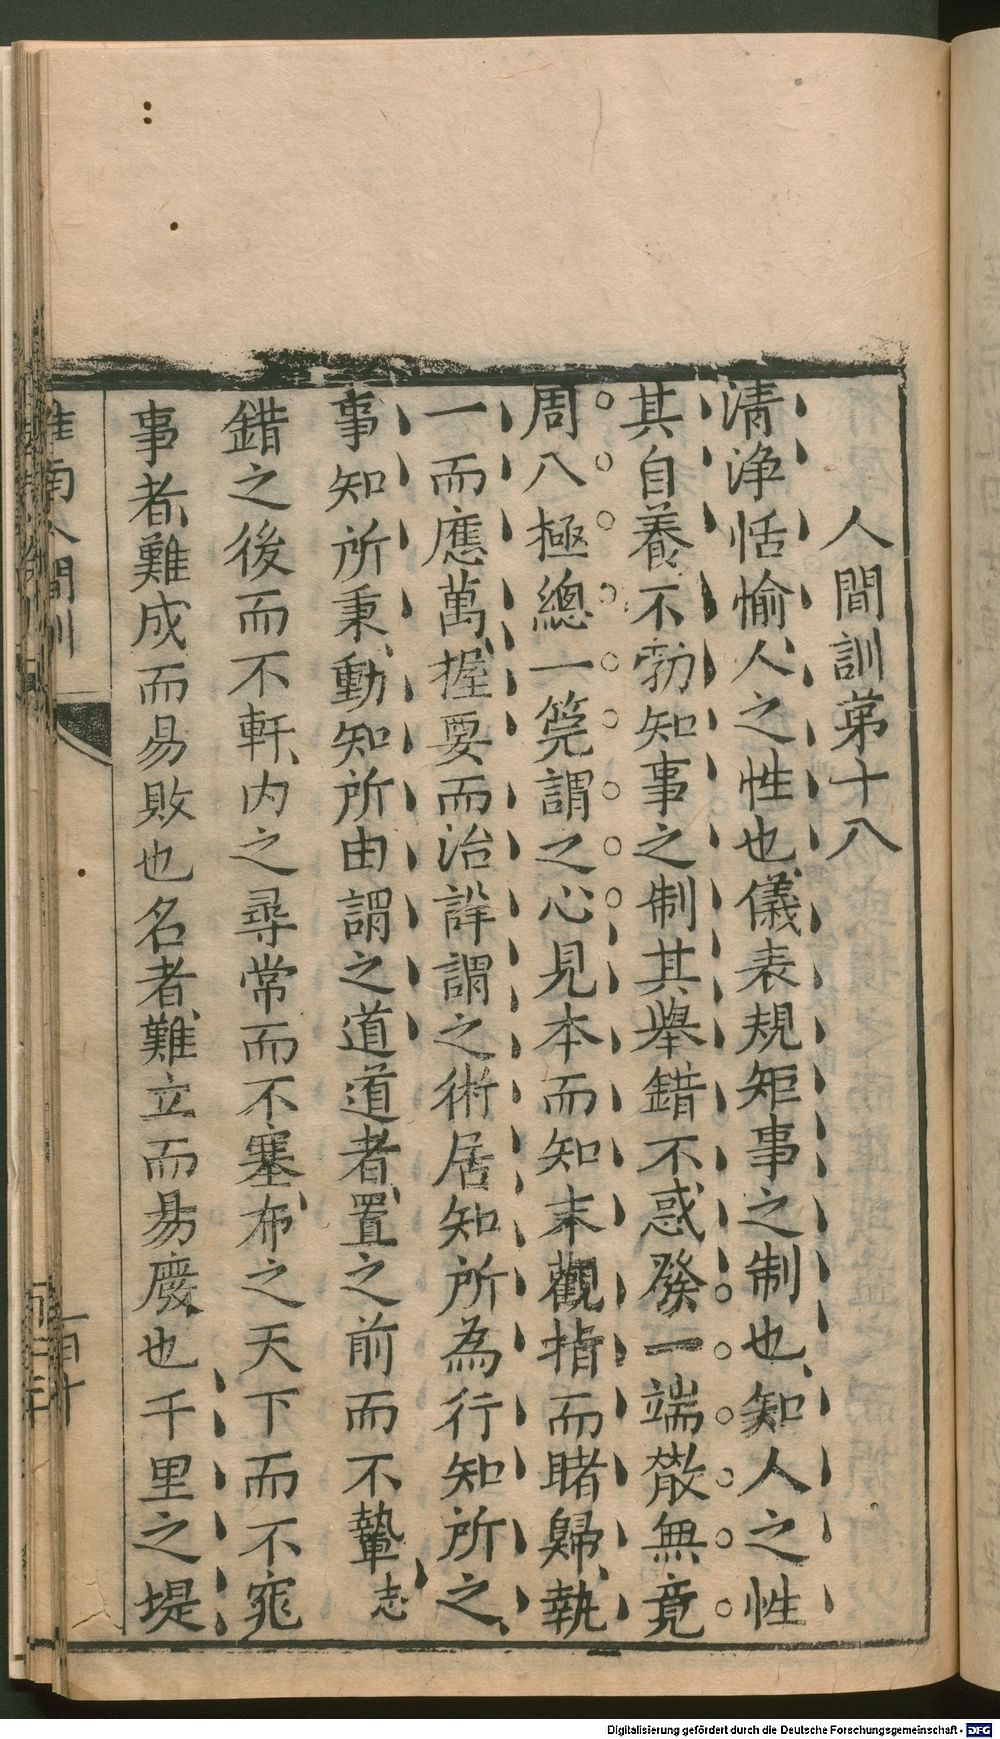 人間訓苐十八
清浄恬愉人之性也儀表規矩事之制也知人之性
其自養不勃知事之制其舉錯不惑發一端㪚無竟
周八極總一筦謂之心見本而知末觀指而睹歸執
一而應萬握要而治詳謂之術居知所為行知所之
事知所秉動知所由謂之道道者置之前而不摯志
錯之後而不軒内之尋常而不塞布之天下而不窕
事者難成而易敗也名者難立而易廢也千里之堤
淮南人間訓
Digitalisierung gefördert durch die Deutsche Forschungsgemeinschaft - DFG